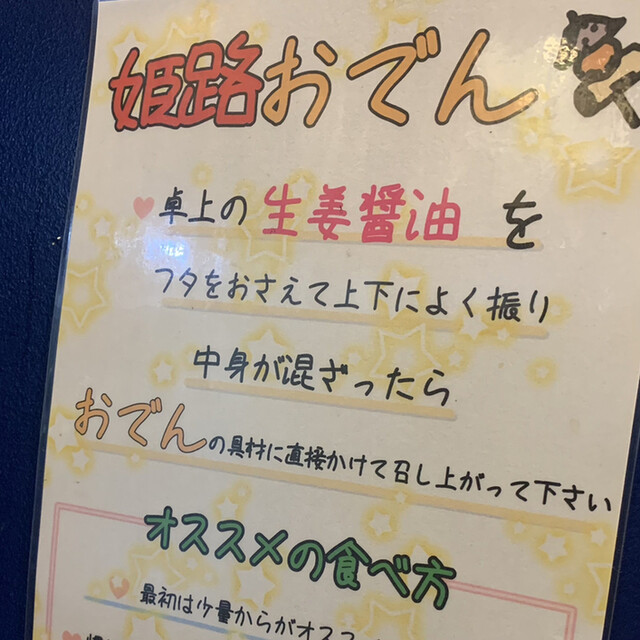 姫路おでん
卓上の 生姜醤油 を
フタをおさえて上下によく振り
中身が混ざったら
おでんの具材に直接かけて召し上がって下さい
オススメの食べ方
最初は少量からがオスス